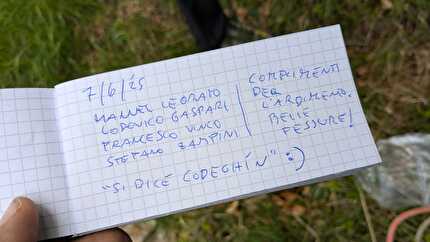 7/6/25
MANUEL LEONATO
LODOVICO GASPARI
FRANCESCO VINCO
STEFANO ZAMPINI
COMPLIMENTI
PER
L'ARDIMENTO.
BELLE
FESSURE!
"SI DICE CODEGHÍN" :)